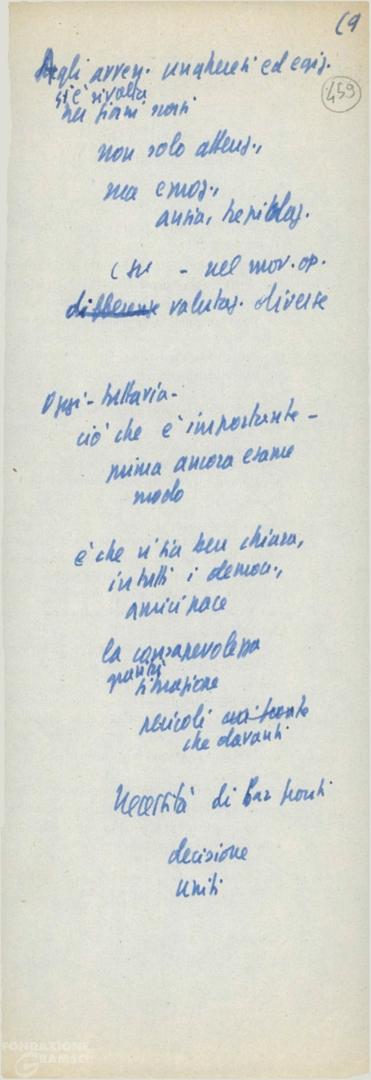 69
459
Agli avven. ungheresi ed egiz.
si è rivolta
nei giorni scorsi
non solo attenz.,
ma emoz.,
ansia, trepidaz.
csu - nel mov. op.
differenze valutaz. diverse
Oggi - tuttavia -
ciò che è importante -
prima ancora esame
modo
è che vi sia ben chiara,
in tutti i democ.,
amici pace
la consapevolezza
gravità
situazione
pericoli
che davanti
Necessità di far fronti
decisione
uniti
FONDAZIONE
GRAMSCI